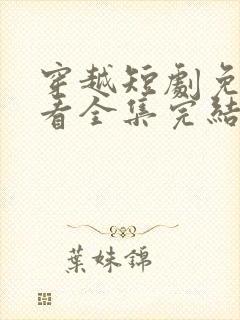 穿越短劇免
看全集完結
葉妹錦